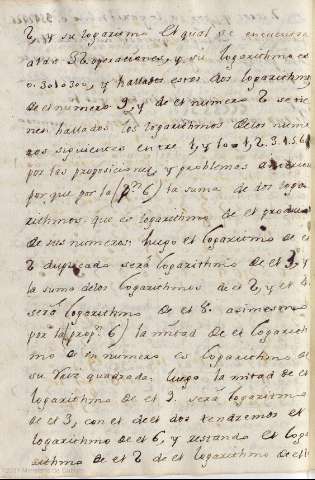 2, y su logarithmo el qual se encuentra
a las operaciones, y su logarithmo es
0.3010300, y hallados estos dos logarithmos
de el numero 9, y de el numero 2 se tie-
nen hallados los logarithmos de los nume-
ros siguientes entre 1, y 10 = 1. 2. 3. 4. 5. 6.
por las proposiciones, y problemas
por que por la (p.n 6) la suma de dos loga-
rithmos que es logarithmo de el produc
de sus numeros: luego el logarithmo de el
2 duplicado será logarithmo de el , y
la suma de los logarithmos de el 2, y el
será logarithmo de el 8. asimesmo
por la (prop.n 6) la mitad de el logarith-
mo de un numero es logarithmo de
su raiz quadrada: luego la mitad de el
logarithmo de el 9 será logarithmo
de el 3, con el de el dos tendremos el
logarithmo de el 6, y restando el loga-
rithmo de el 2 de el logarithmo de el